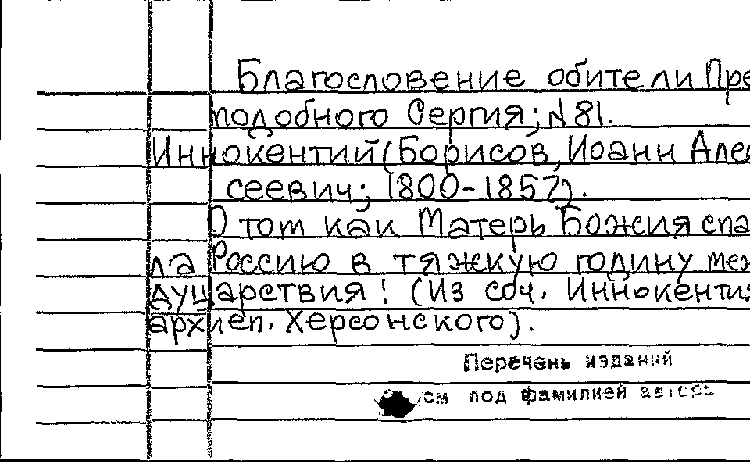 Благословение обители Пре
подобного Сергия; N 81.
Иннокентий (Борисов, Иоанн Алек
сеевич; 1800-1857).
О том как Матерь Божия спа
ла Россию в тяжкую годину меж
дуцарствия! (Из соч. Иннокентия
архиеп. Херсонского).
Перечень изданий
см под фамилией автора